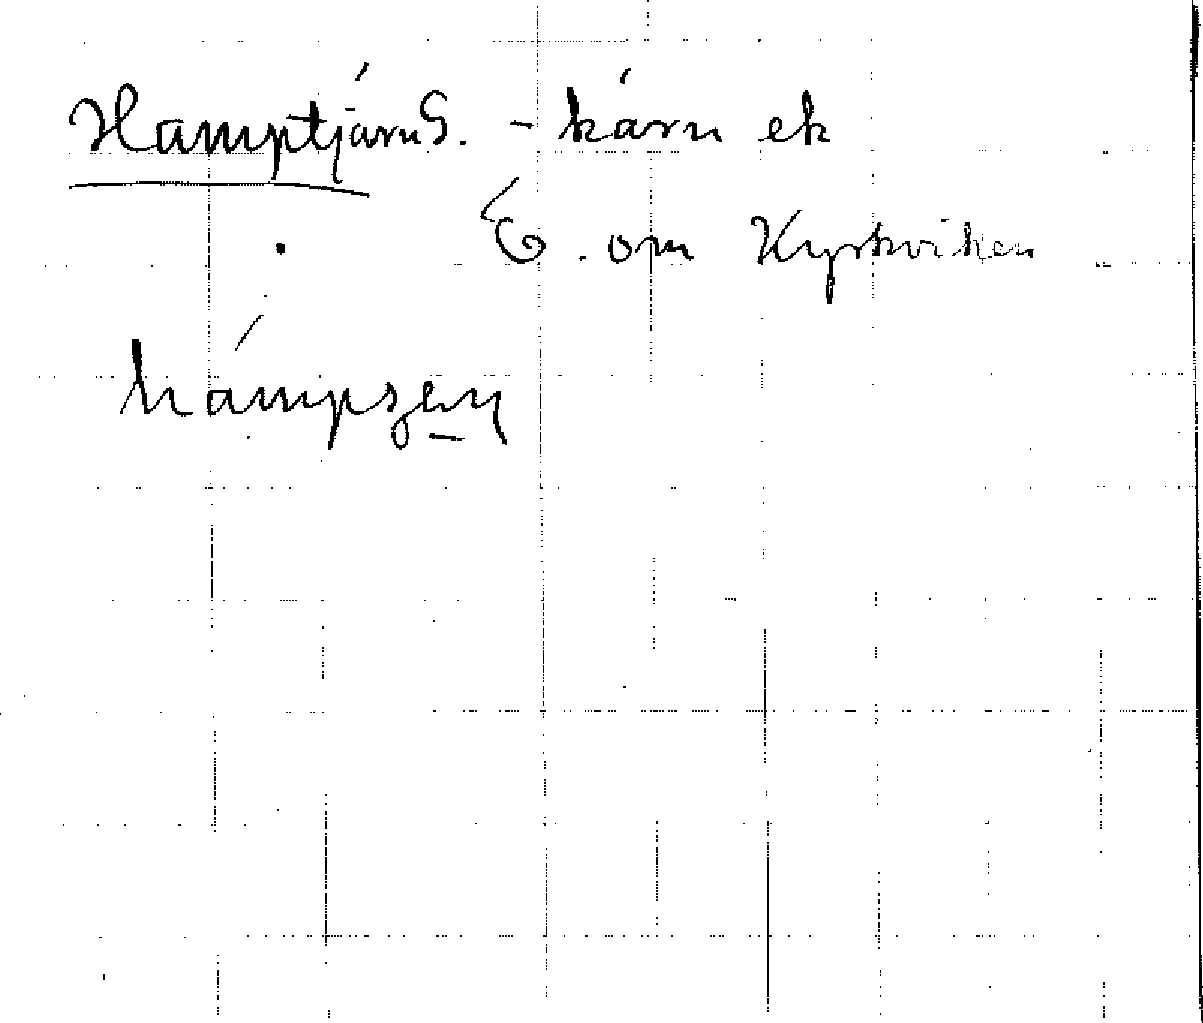 Hamptjärn S. - kärn ek
E. om Kyrkviken
hámpʂɛn